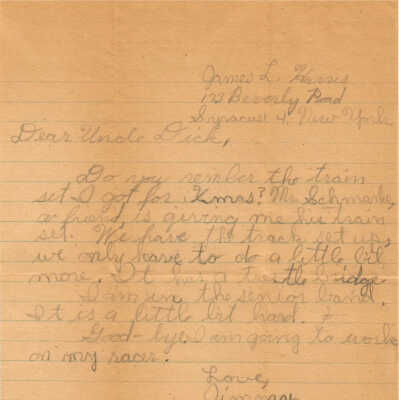 James L. Harris
123 Beverly Road
Syracuse 4, New York
Dear Uncle Dick,
Do you rember the train
set I got for Xmas? Mr. Schmanke,
a friend, is giving me his train
set. We have the track set up,
we only have to do a little bit
more. It has a trestle bridge.
I am in the senior band.
It is a little bit hard.
Good-bye. I am going to work
on my racer.
Love,
Jimmy